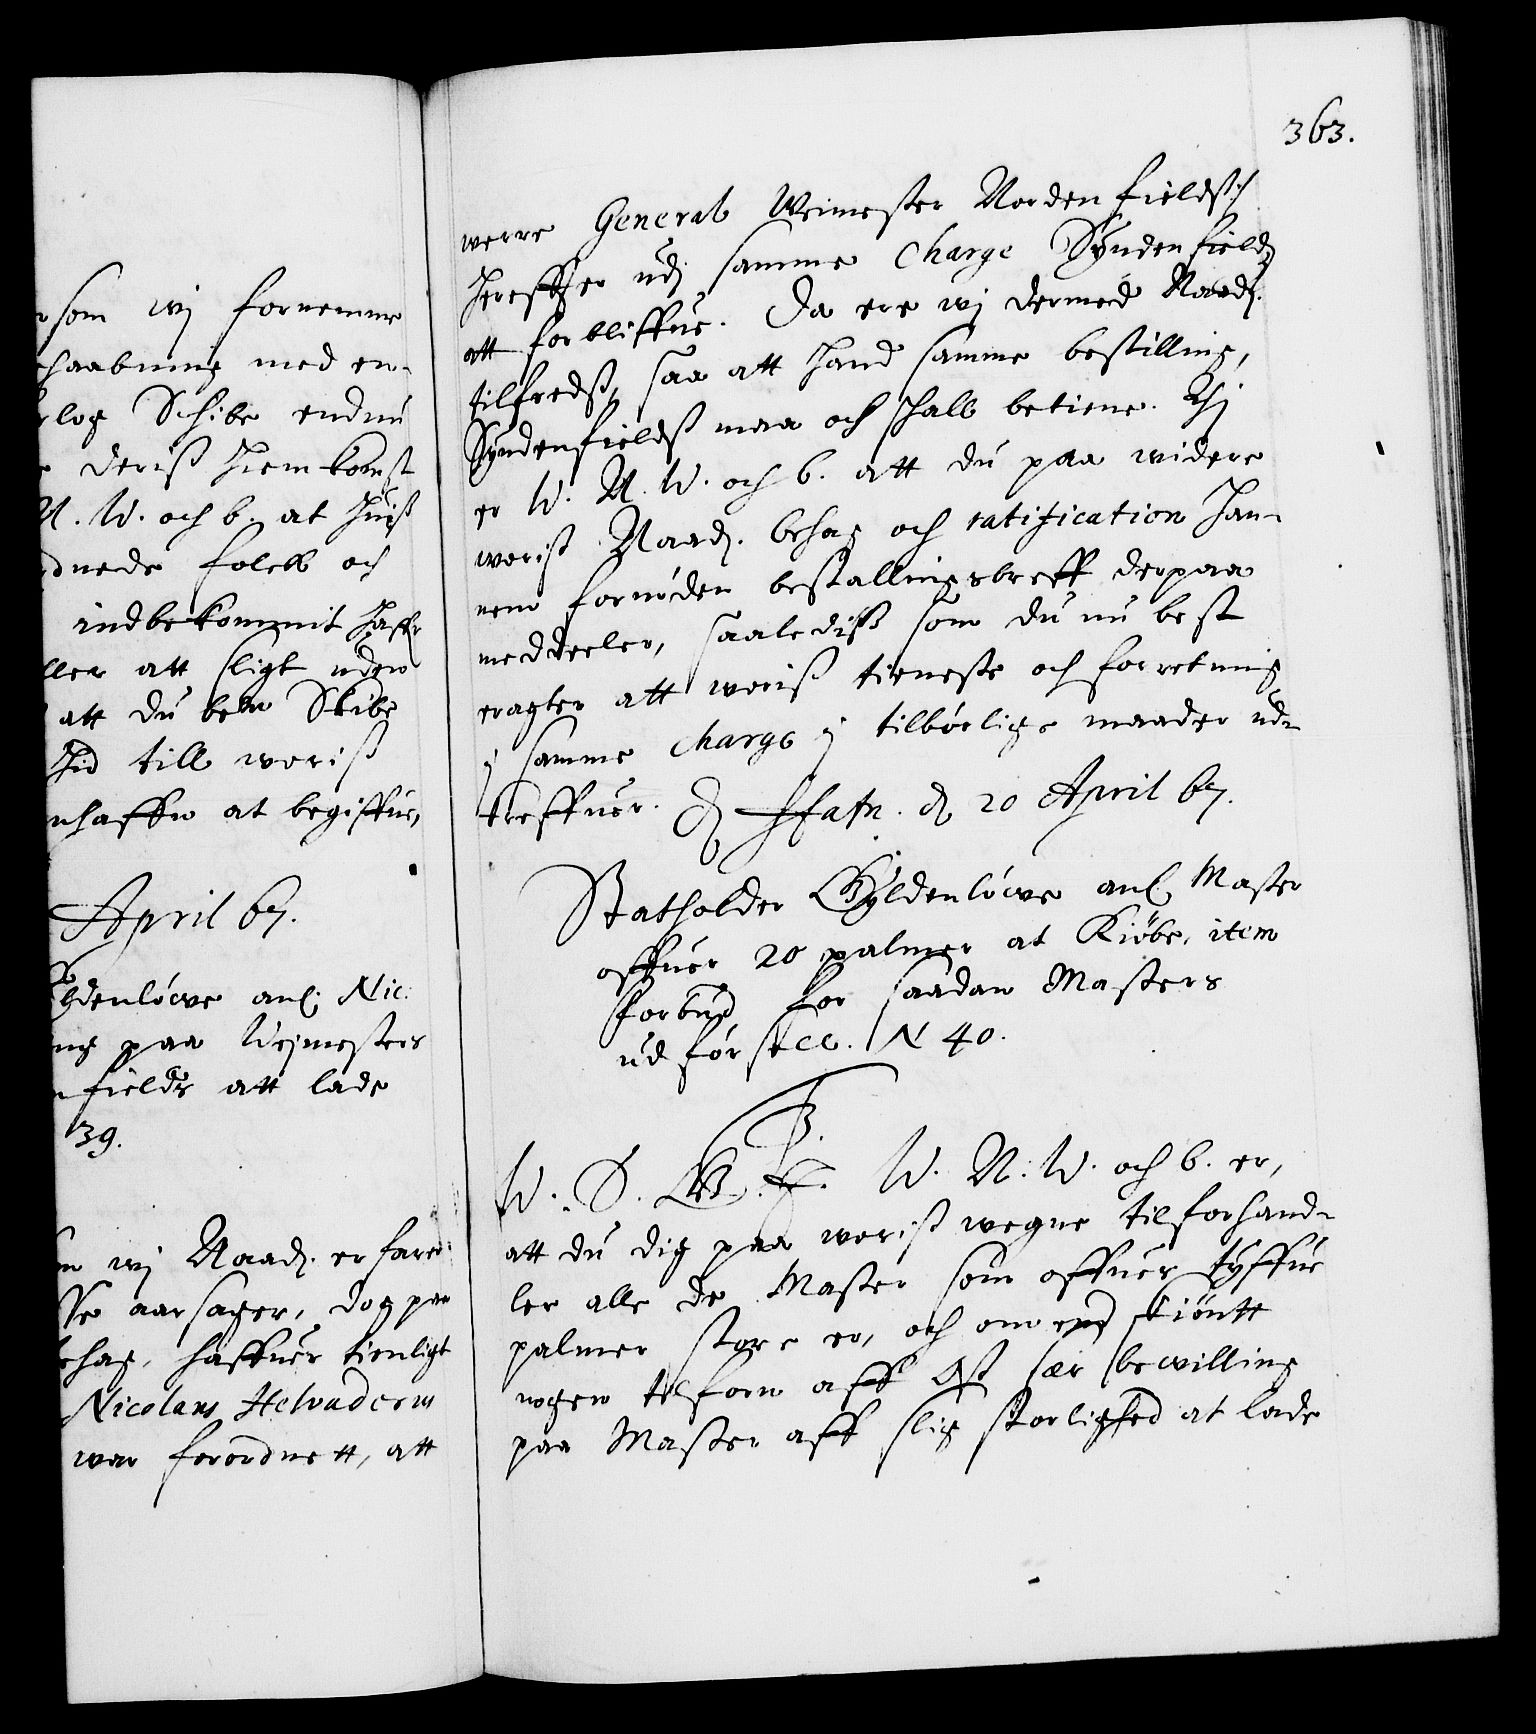 som wj fornemme
haabning med en-
log Schibe endnu
deriss hiemkomst
N. W. och b. at huiss
dnede folck och
indbekommit haffr
ller att sligt uden
att du bem Skibe
hid till woriss
nhaffn at begiffue,
April 67.
ldenlöwe anl. Nic:
ng paa Wejmesters
fields att lade
39.
wj Naad. erfare
sse aarsager, dog paa
ehag, haffuer tienligt
Nicolaus Helvaderus
war forordnett, att
363.
werre General Weimester Nordenfieldsch
hereffter udj samme Charge Syndenfields
att forbliffue. Da ere wj dermed Naad.
tilfredss, saa att hand samme bestilling,
Syndenfieldss maa och schall betiene. Thj
er W. N. W. och b. att du paa widere
woriss Naad. behag och ratification han-
nem fornøden bestallingsbreff derpaa
meddeeler, saalediss som du nu best
eragter att woriss tieneste och forretning
j samme charge j tilbørlige maader ud-
kreffuer. Hafn. d 20 April 67.
Statholder Gyldenlöwe anl. Master
offuer 20 palmer at Kiöbe, item
forbud for saadan Masters
udførsell. N 40.
F. 3.
W. S. G. T. W. N. W. och b. er,
att du dig paa woriss wegne tilforhand-
ler alle de Master som offuer tyffue
palmer store er, och om end skiöntt
nogen tilforn aff Oss sær bewilling
paa Master aff slig storlighed at lade